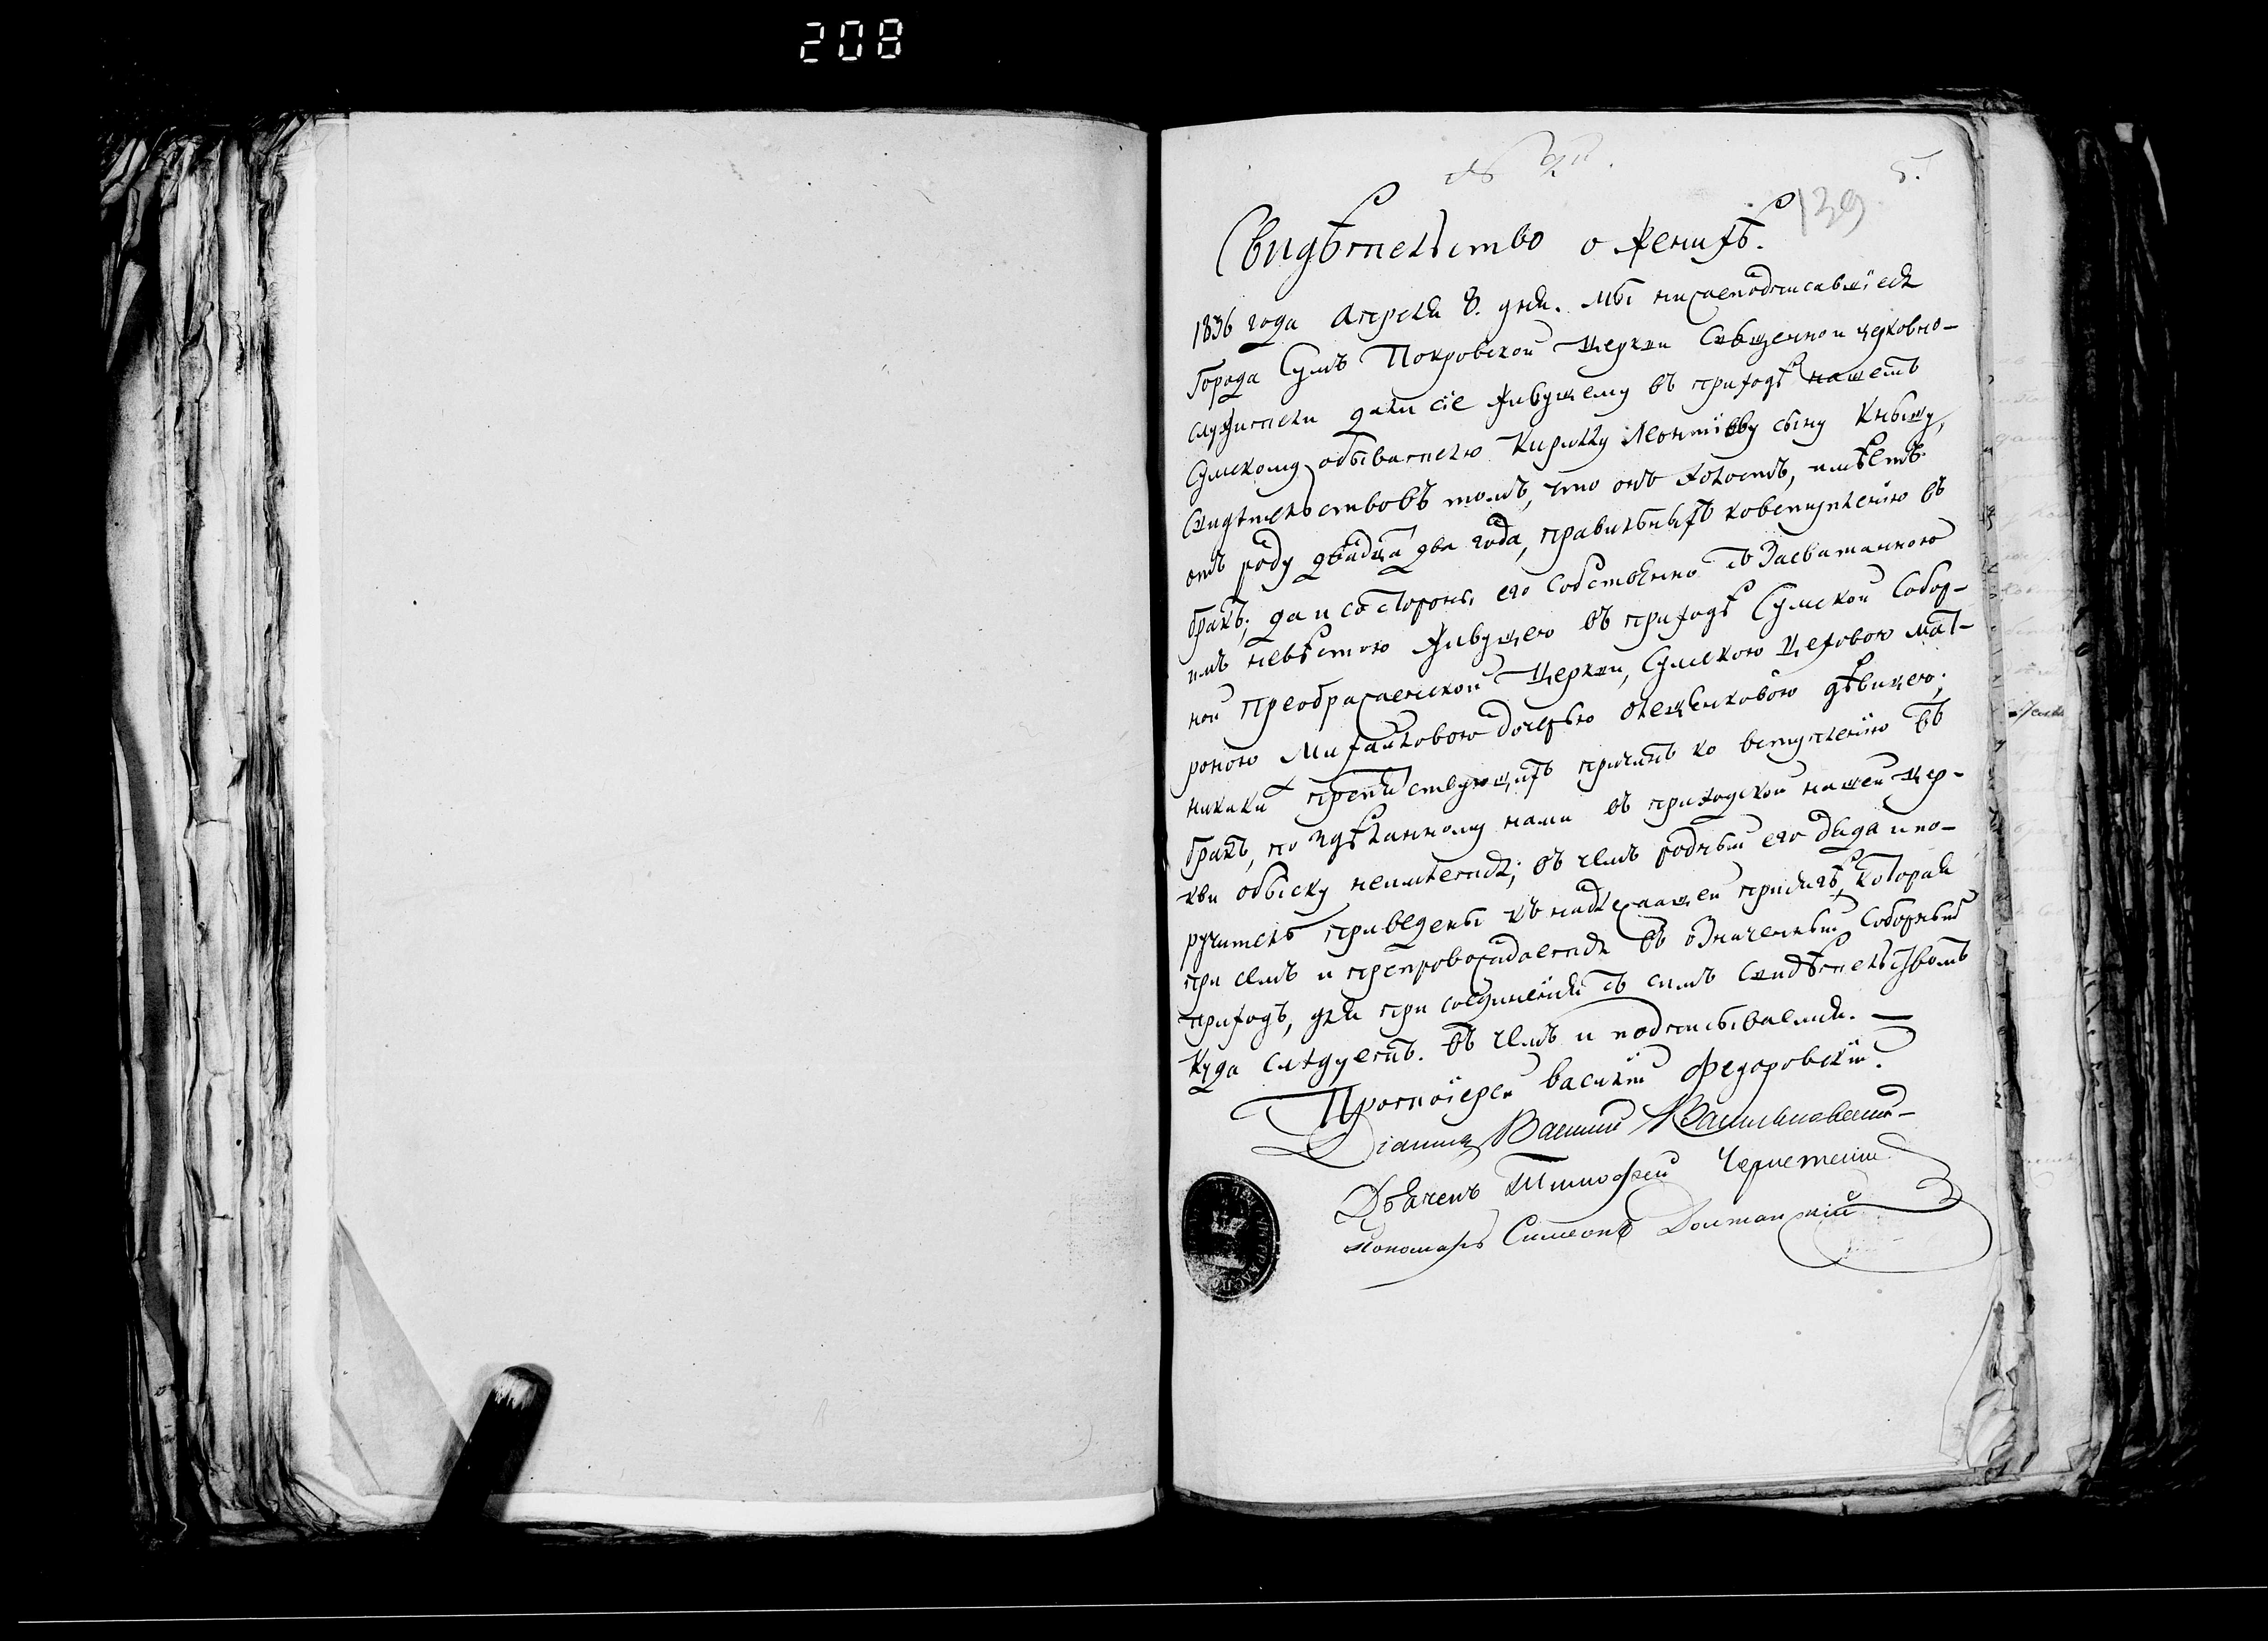 208
5.
139
Свидѣтельство о женихѣ.
1836 года Апреля 8. дня. Мы нижеподписавшіеся
города Сумъ Покровской Церкви Священной церковно-
служители дали сіе живущему въ приходѣ нашемъ
Сумскому обывателю Кирилу Леонтіеву сыну Кнышу,
Свидѣтельство въ томъ, что онъ холостъ, имѣетъ
отъ роду двадца два года, правильныхъ ковступленію въ
бракъ; да и со стороны его Собственно съ Засватанною
имъ невѣстою живущею въ приходѣ Сумской Собор-
ной Преображенской Церкви, Сумскою Цеховою Мат-
роною Михайловою дочерью Олещенковою дѣвицею;
никаки препятствующихъ причинъ ко вступленію въ
бракъ, по здѣланному нами въ приходской нашей Цер-
кви обыску неимѣется; въ чемъ родный его дядя и по-
ручитель приведены къ надлежащей присягѣ, которая
при семъ и препровождается въ означенный Соборный
приходъ, для при соединенія съ симъ Свидѣтельствомъ
куда слѣдуетъ. въ чемъ и подписываемся. —
Протоіерей Василій Федоровскій.
Діаконъ Василій
Дьячекъ Тимофей
пономарь Симеонъ